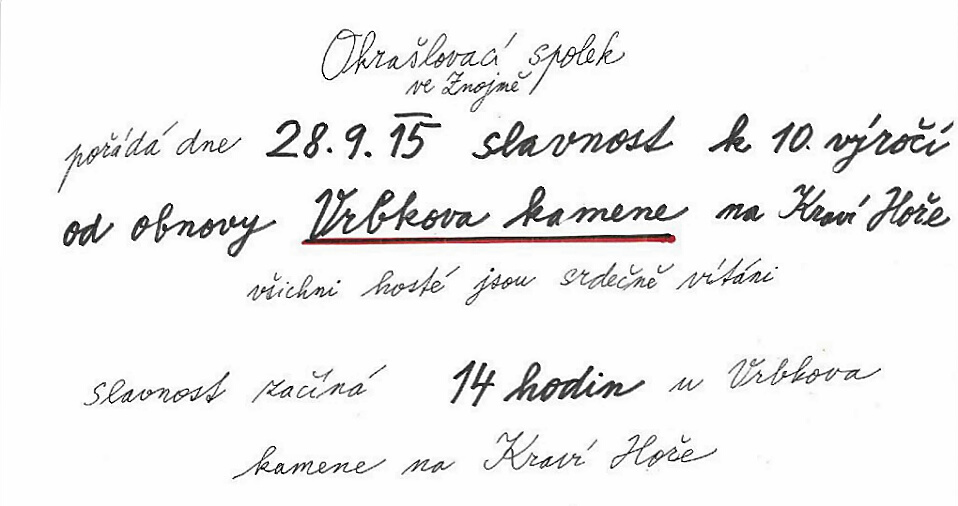 Okrašlovací spolek
ve Znojmě
pořádá dne 28.9.15 slavnost k 10. výročí
od obnovy Vrbkova kamene na Kraví Hoře
všichni hosté jsou srdečně vítáni
slavnost začíná 14 hodin u Vrbkova
kamene na Kraví Hoře